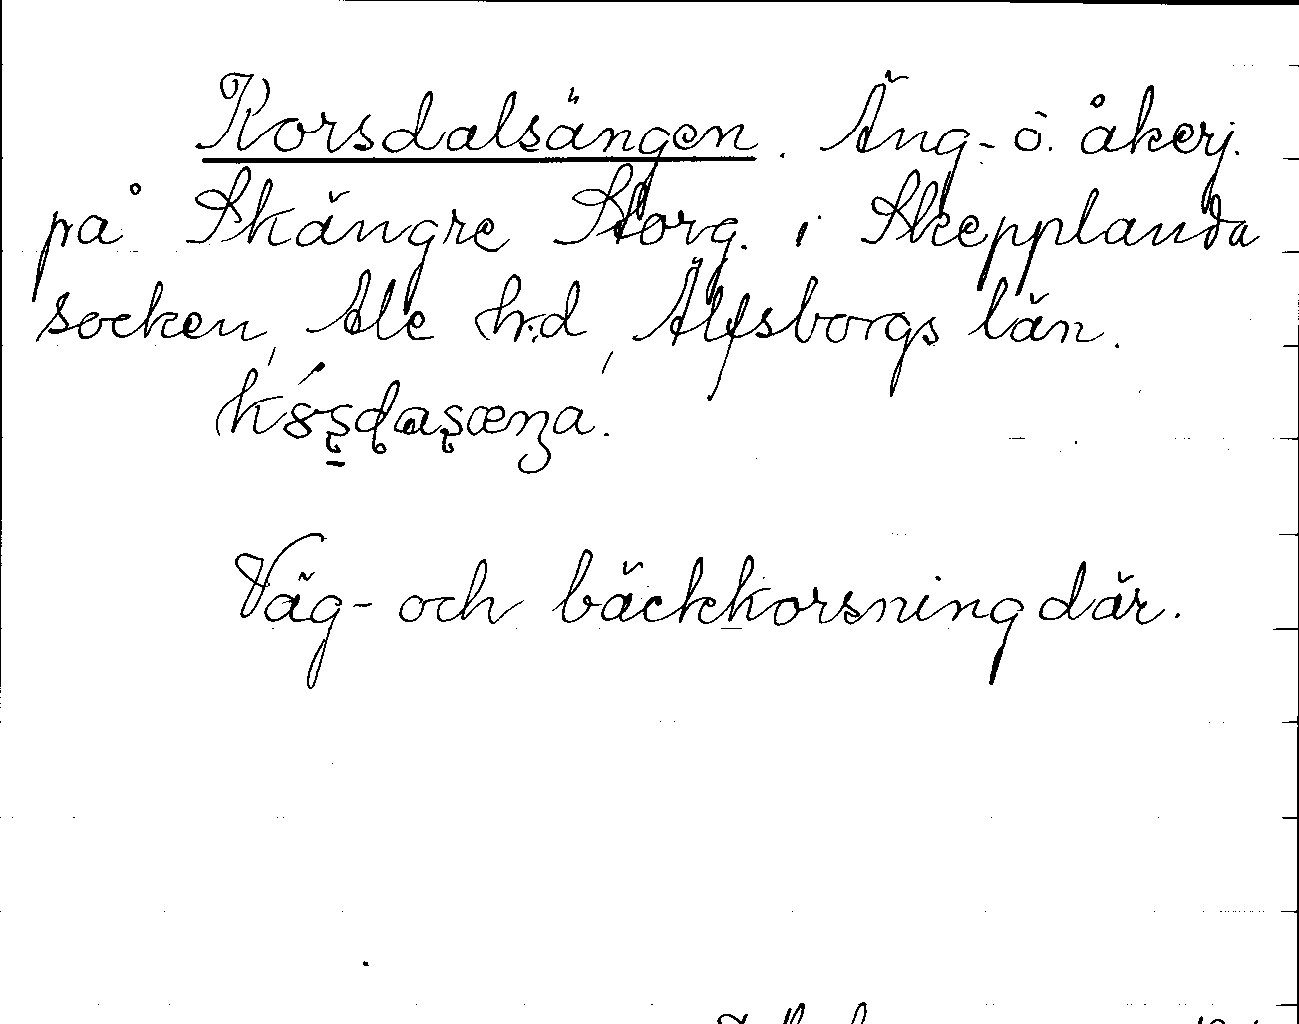 Korsdalsängen. Äng- o. åkerj.
på Skängre Storg. i Skepplanda
socken, Ale hd, Älfsborgs län.
Väg- och bäckkorsning där.